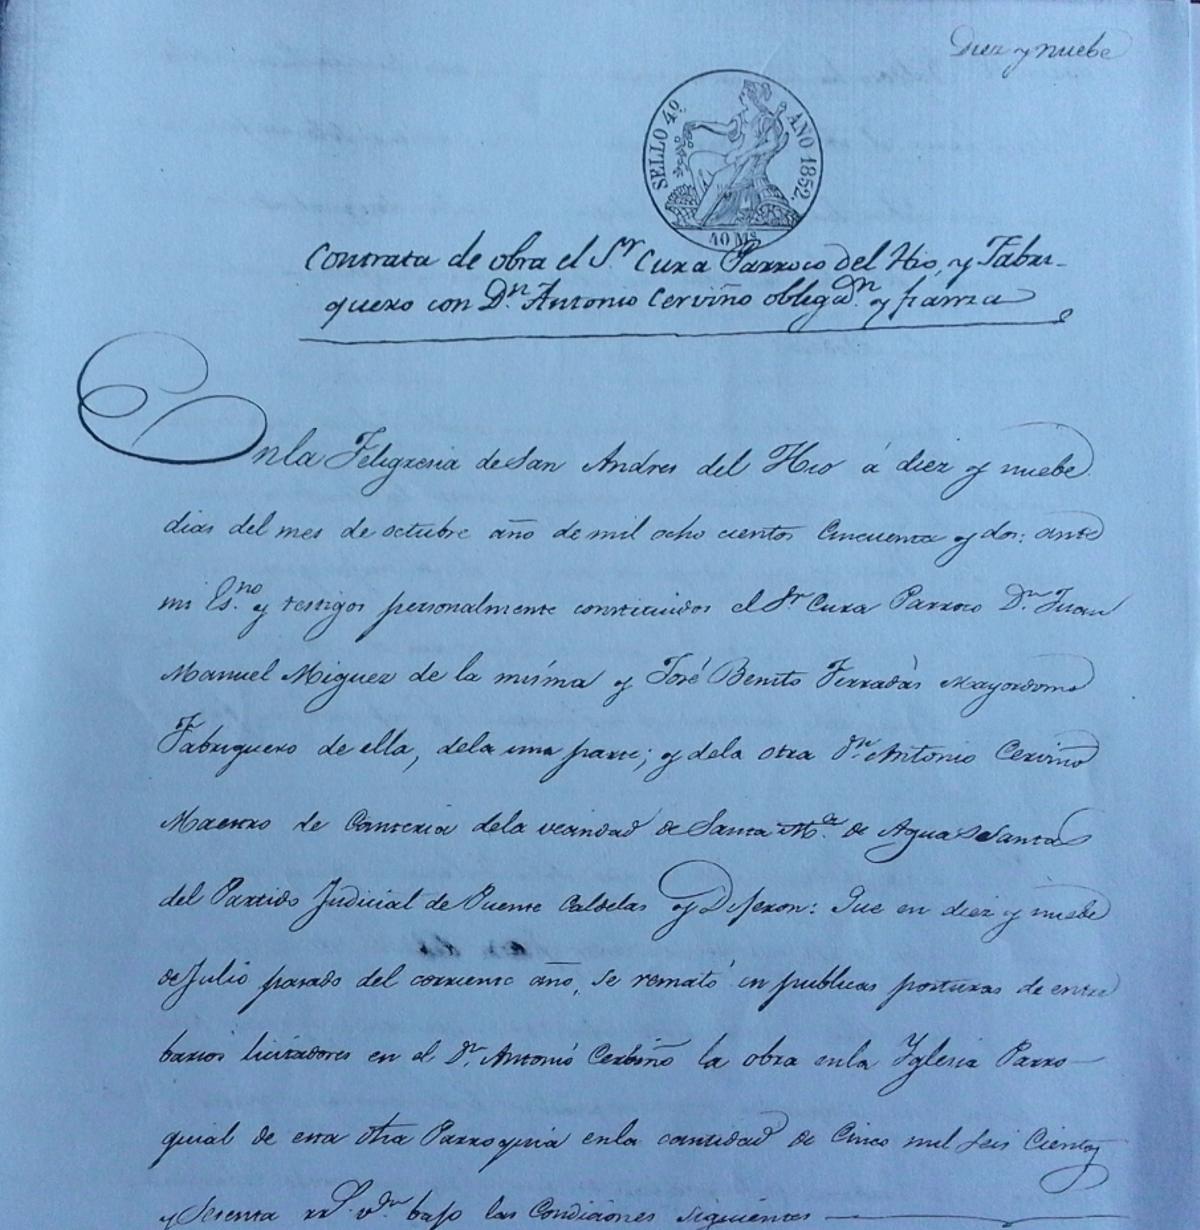 Diez y nuebe
SELLO 4º AÑO 1852.
40 Ms
Contrata de obra el Sr Cura Parroco del Hio, y Fabri-
quero con Dn. Antonio Cerviño obligadn. y fianza
En la Feligresia de San Andres del Hio á diez y nuebe
dias del mes de octubre año de mil ocho cientos Cincuenta y dos: ante
mi Es.no y testigos personalmente constituidos el Sr Cura Parroco Dn. Juan
Manuel Miguez de la misma y José Benito Ferradás Mayordomo
Fabriquero de ella, dela una parte; y dela otra Dn. Antonio Cerviño
Maestro de Canteria dela vecindad de Santa Ma. de Agua Santas
del Partido Judicial de Puente Caldelas y Digeron: Que en diez y nuebe
de Julio pasado del corriente año, se remató en publicas posturas de entre
barios licitadores en el Dn. Antonio Cerbiño la obra enla Yglesia Parro
quial de esta dha Parroquia enla cantidad de Cinco mil seis Cientos
y Sesenta rr.s v.on bajo las Condiciones siguientes